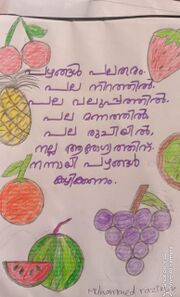 പഴങ്ങൾ പലതരം.
പല നിറത്തിൽ.
പല വലുപ്പത്തിൽ.
പല മണത്തിൽ
പല രുചിയിൽ.
നല്ല ആരോഗ്യത്തിന്
നന്നായി പഴങ്ങൾ
കഴിക്കണം.
Muhammed